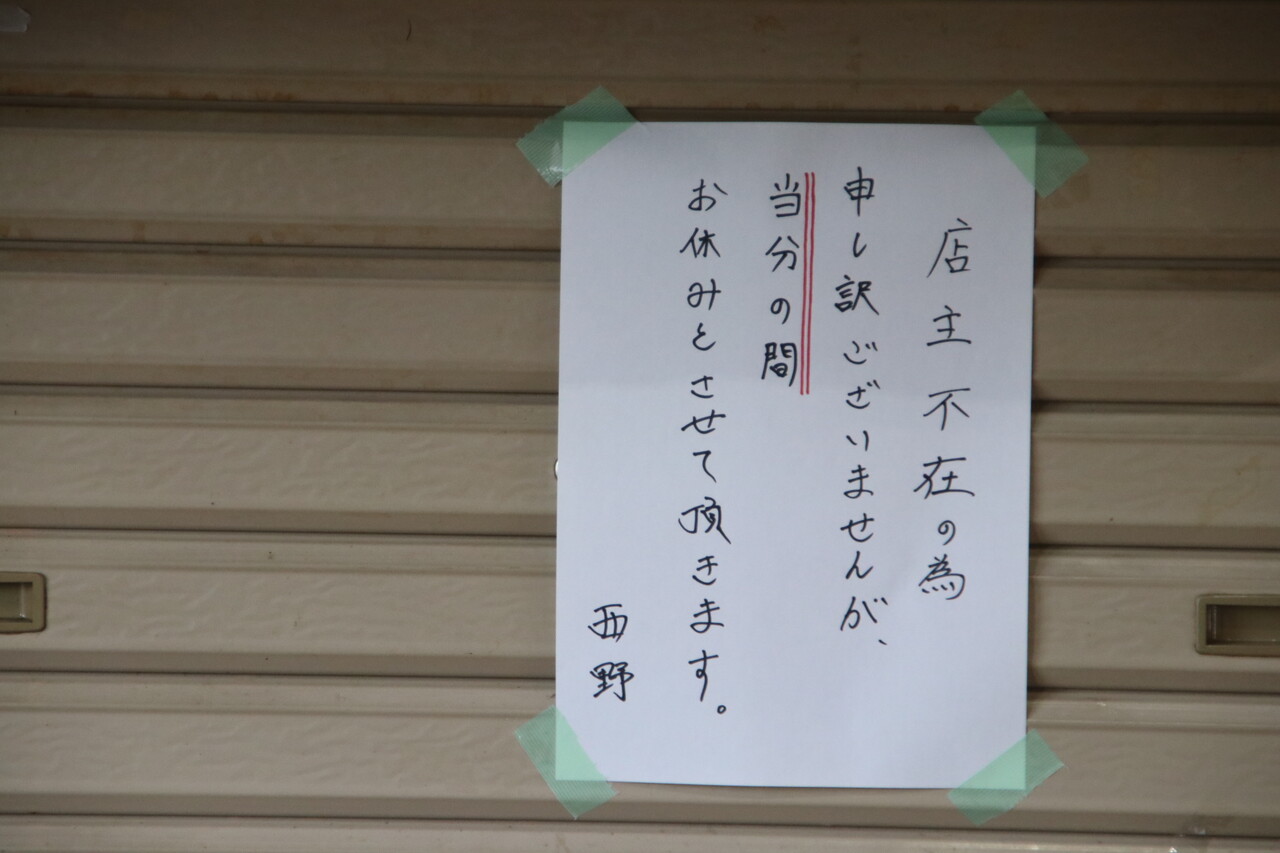 店主不在の為
申し訳ございませんが、
当分の間
お休みとさせて頂きます。
西野